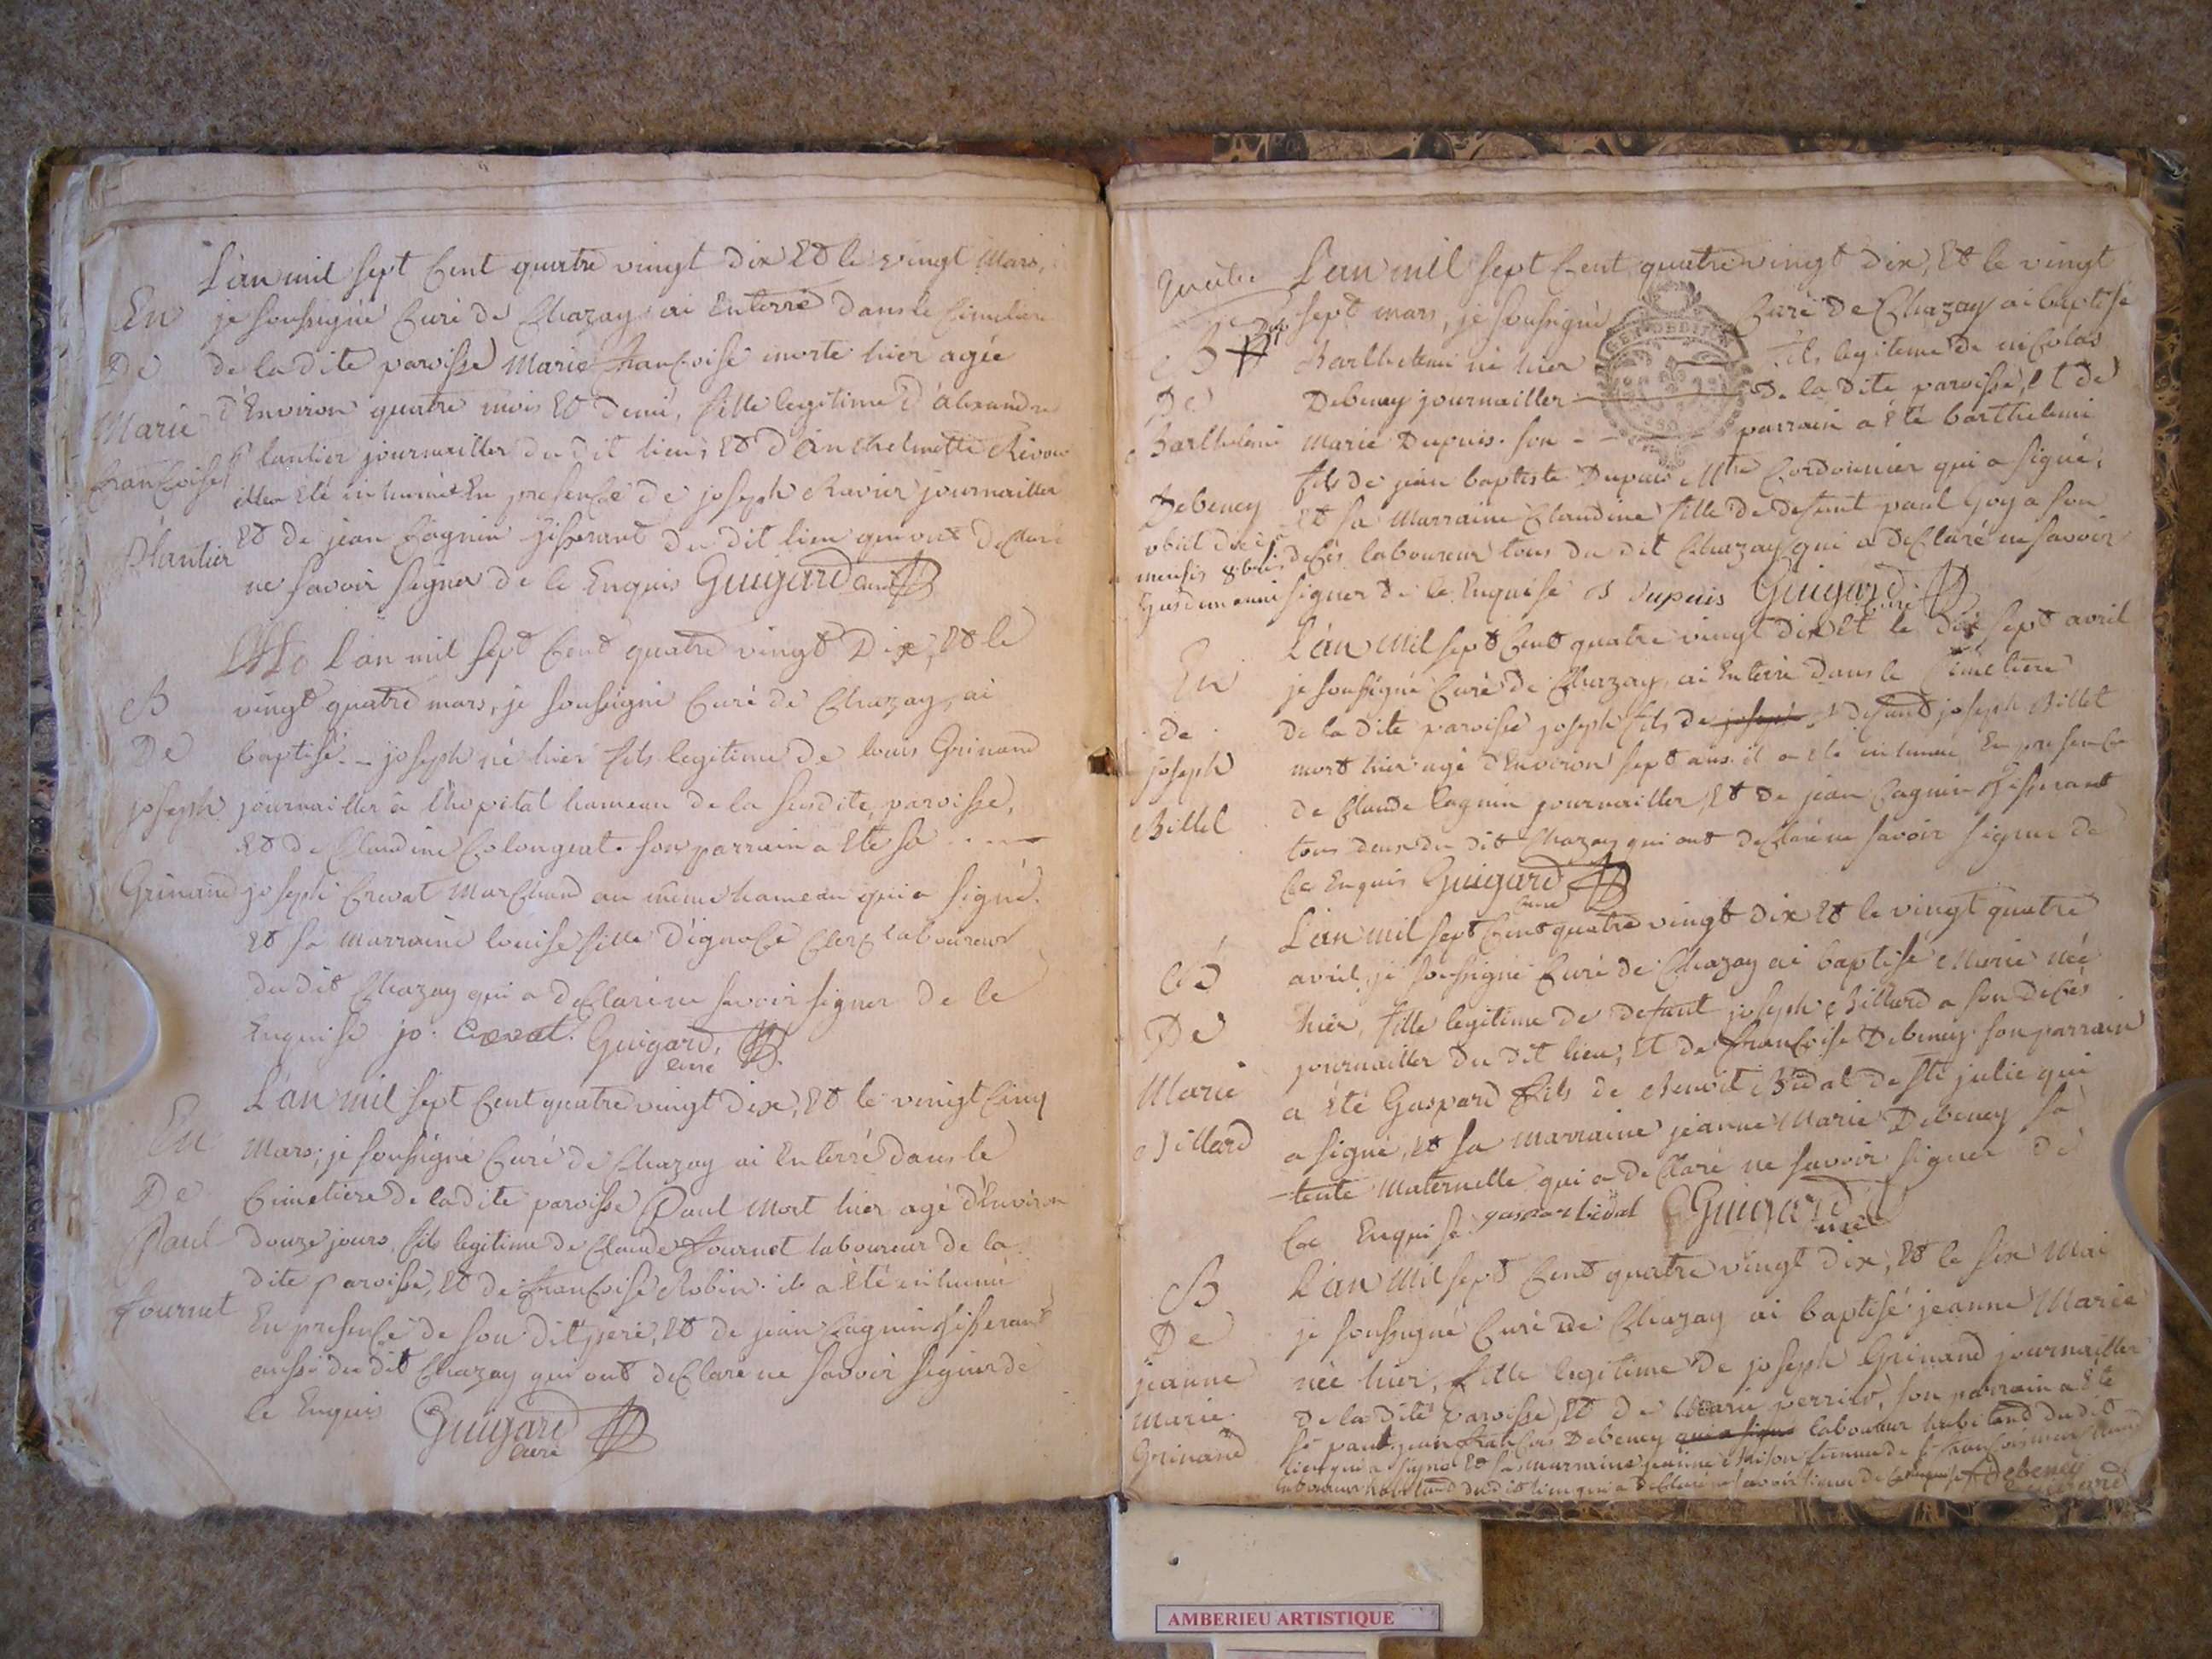 L'an mil sept cent quatre vingt dix Et le vingt Mars,
En
je soussigné Curé de Chazay ai Enterré dans le Cimetiere
De
de la dite paroisse Marie francoise morte hier agée
Marie
d'Environ quatre mois Et demi, fille legitime d'alexandre
francoise
Plantier journaillier du dit lieu; Et d'Anthelmette
elle a Eté inhumée En presence de joseph Ravier journaillier
Plantier
Et de jean Cagnin tisserant du dit lieu qui ont declaré
ne savoir signer de ce Enquis Guigard curé
L'an mil sept Cent quatre vingt Dix, Et le
B
vingt quatre mars, je soussigné Curé de Chazay, ai
De
baptisé - joseph né hier fils legitime de louis Grinand
joseph
journaillier à l'hopital hameau de la susdite paroisse,
Et de Claudine Colongeat. son parrain a Eté sr
Grinand
joseph Crevat Marchand au meme hameau qui a signé.
Et sa marraine louise fille d'ignace Clerc laboureur
du dit Chazay qui a declaré ne savoir signer de ce
Enquise jo: Crevat. Guigard, curé
L'an mil sept Cent quatre vingt dix, Et le vingt Cinq
En
Mars; je soussigné Curé de Chazay ai Enterré dans le
De
Cimetiere de la dite paroisse Paul Mort hier agé d'Environ
Paul
douze jours, fils legitime de Claude fournet laboureur de la
dite paroisse, Et de francoise Robin. il a Eté inhumé
fournet
En presence de son dit pere, Et de jean Cagnin tisserant
aussi du dit Chazay qui ont declaré ne savoir signer de
ce Enquis Guigard Curé
quatre
L'an mil sept Cent quatre vingt dix, Et le vingt
B
sept mars, je soussigné Curé de Chazay ai baptisé
Barthelemi né hier fils legitime de nicolas
De
Debeney journaillier de la dite paroisse, Et de
Barthelemi
Marie Dupuis. son parrain a Eté barthelemi
fils de jean baptiste Dupuis Mtre Cordonnier qui a signé,
Debeney
Et sa Marraine Claudine fille de defunt paul Goy a son
obiit die
decès laboureur tous du dit Chazay qui a declaré ne savoir
mensis 8bris
Ejusdem anni
signer de ce Enquise B Dupuis Guigard Curé
L'an Mil sept Cent quatre vingt dix Et le dix sept avril
En
je soussigné Curé de Chazay, ai Enterré dans le Cimetiere
de
de la dite paroisse joseph fils de joseph defunt joseph Billet
joseph
mort hier agé d'Environ sept ans. il a Eté inhumé En presence
Billet
de Claude Cagnin journaillier, Et de jean Cagnin tisserant
tous deux du dit Chazay qui ont declaré ne savoir signer de
Ce Enquis Guigard curé
L'an mil sept Cent quatre vingt dix Et le vingt quatre
avril, je soussigné Curé de Chazay ai baptisé Marie née
De
hier, fille legitime de defunt joseph Billard a son decès
journaillier du dit lieu; Et de francoise Debeney. son parrain
Marie
a Eté Gaspard fils de Benoit Bidal de ste julie qui
Billard
a signé, Et sa marraine jeanne Marie Debeney sa
tente Maternelle qui a declaré ne savoir signer de
Ce Enquise gaspar bidal Guigard curé
B
L'an Mil sept Cent quatre vingt dix, Et le six Mai
De
je soussigné Curé de Chazay ai baptisé jeanne Marie
jeanne
née hier, fille legitime de joseph Grinand journaillier
Marie
de la dite paroisse, Et de Marie perrier, son parrain a Eté
Grinand
sr jean francois Debeney qui a signé laboureur habitant du dit
lieu qui a signé Et sa marraine jeanne femme de
laboureur habitant du dit lieu qui a declaré ne savoir signer de Ce Enquise Debeney
Guigard
AMBERIEU ARTISTIQUE